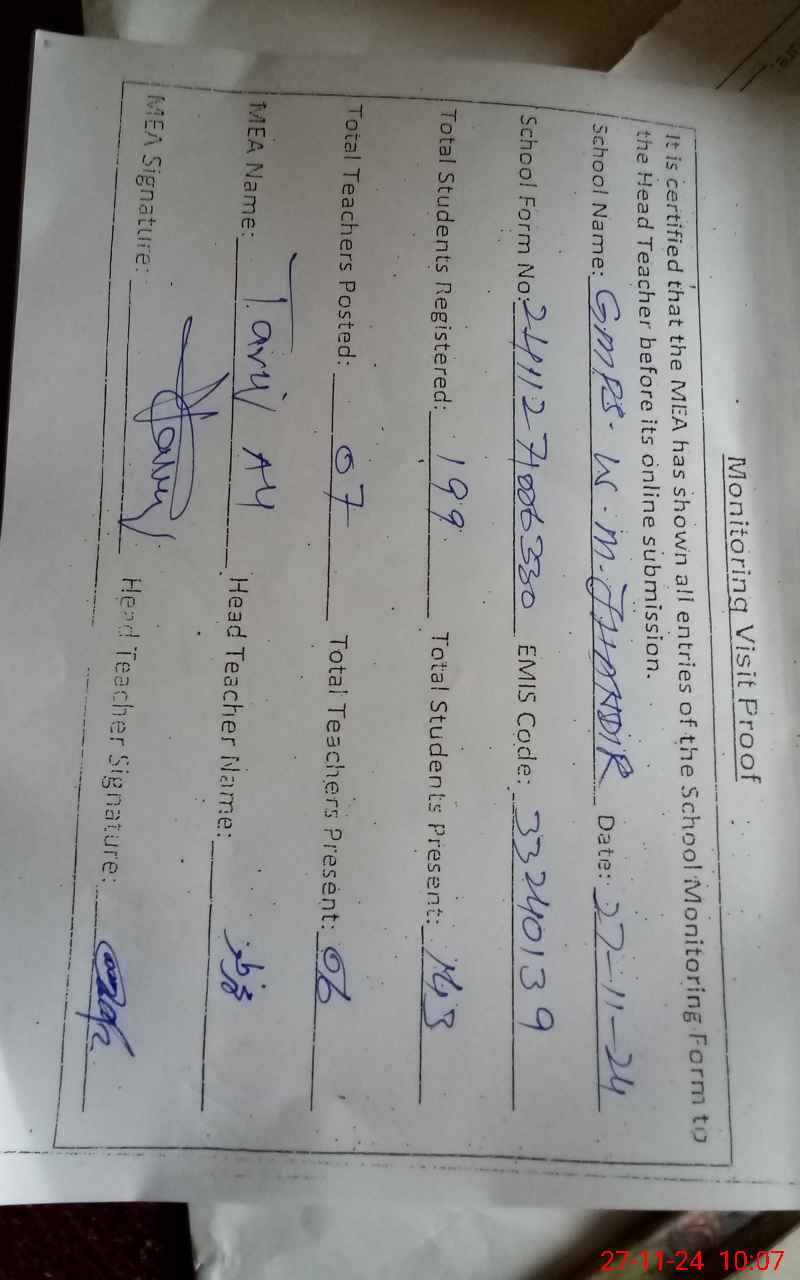 Monitoring Visit Proof
It is certified that the MEA has shown all entries of the School Monitoring Form to
the Head Teacher before its online submission.
School Name: GMPS. W. M. JHANDIR Date: 27-11-24
School Form No: 241127006330 EMIS Code: 33240139
Total Students Registered: 199 Total Students Present:
Total Teachers Posted: 07 Total Teachers Present: 06
MEA Name: Head Teacher Name:
MEA Signature: Head Teacher Signature:
27-11-24 10:07